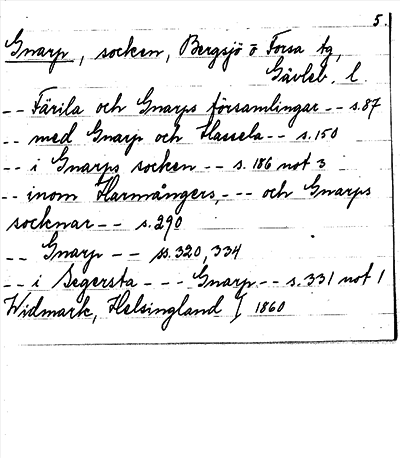 5.
Gnarp, socken, Bergsjö o Forsa tg,
Gävleb. l.
-- Färila och Gnarps församlingar -- s.87
-- med Gnarp och Hassela -- s.150
-- i Gnarps socken -- s. 186 not 3
-- inom Harmångers, -- och Gnarps
socknar -- s.290
-- Gnarp -- ss.320, 334
-- i Segersta - - - Gnarp -- s.331 not 1
Widmark, Helsingland I 1860